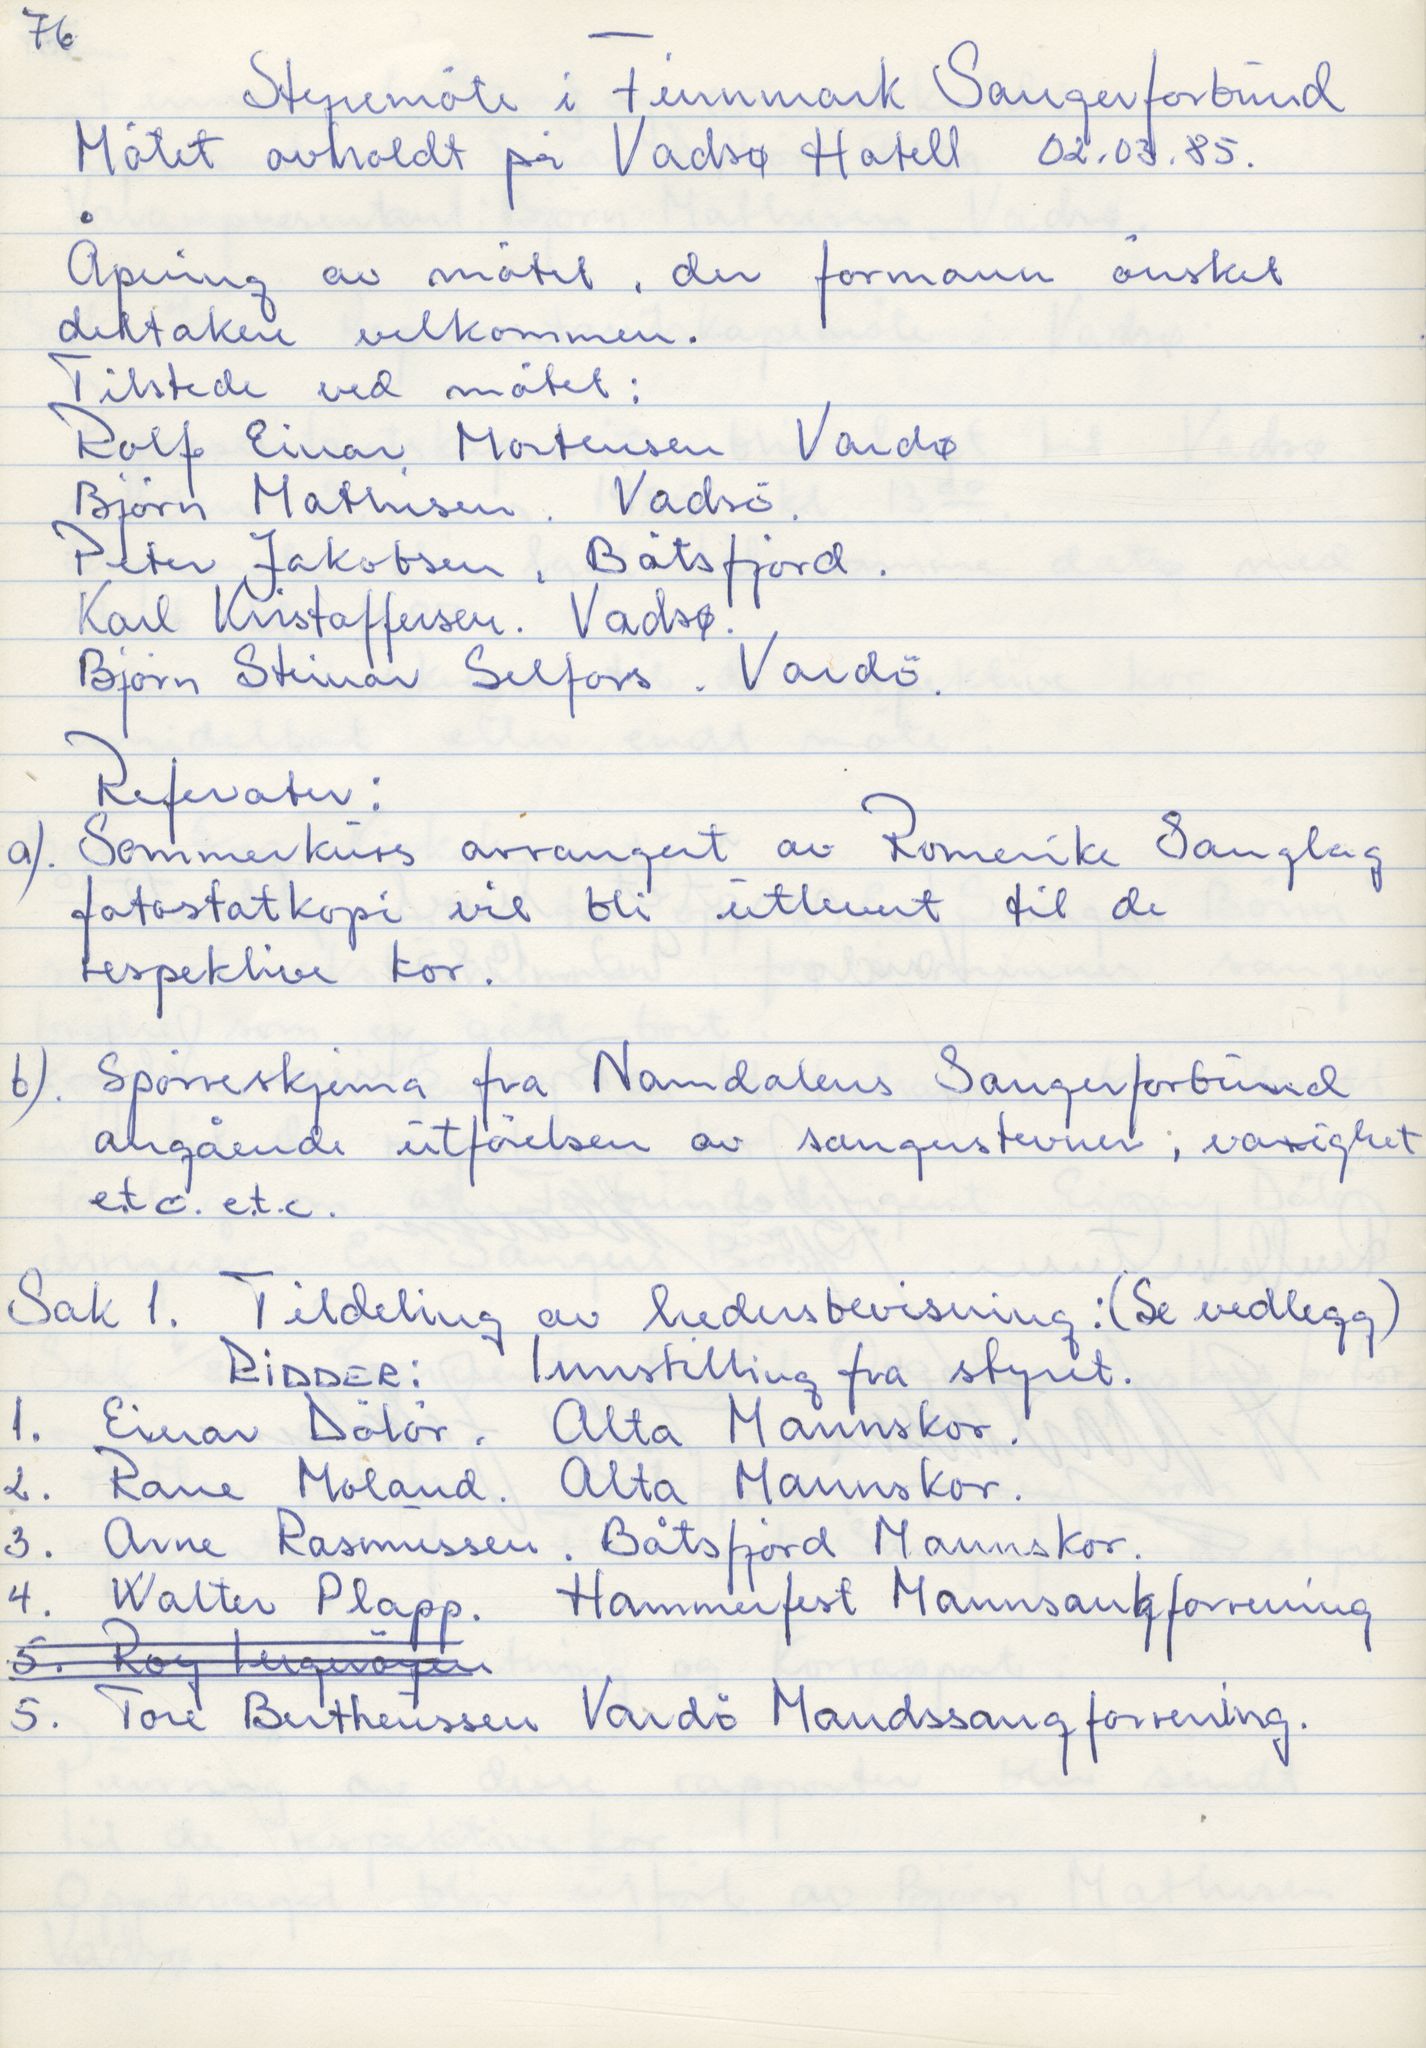 76
Styremöte i Finnmark Sangerforbund
Mötet avholdt på Vadsø Hotell 02.03.85.
Åpning av mötet, der formann önsket
deltakere velkommen.
Tilstede ved mötet:
Rolf Einar Mortensen Vardø
Björn Mathisen. Vadsö.
Peter Jakobsen, Båtsfjord.
Karl Kristoffersen. Vadsø.
Björn Steinar Selfors. Vardö.
Referater:
a). Sommerkurs arrangert av Romerike Sanglag
fotostatkopi vil bli utlevert til de
respektive kor.
b). Spörreskjema fra Namdalens Sangerforbund
angående utförelsen av sangerstevner, varighet
etc. etc.
Sak 1. Tildeling av hedersbevisning: (Se vedlegg)
RIDDER: Innstilling fra styret.
1. Einar Dölör. Alta Mannskor.
2. Rane Moland. Alta Mannskor.
3. Arne Rasmussen. Båtsfjord Mannskor.
4. Walter Plapp. Hammerfest Mannsangforening
5. Roy
5. Tore Bertheussen Vardö Mandssangforening.